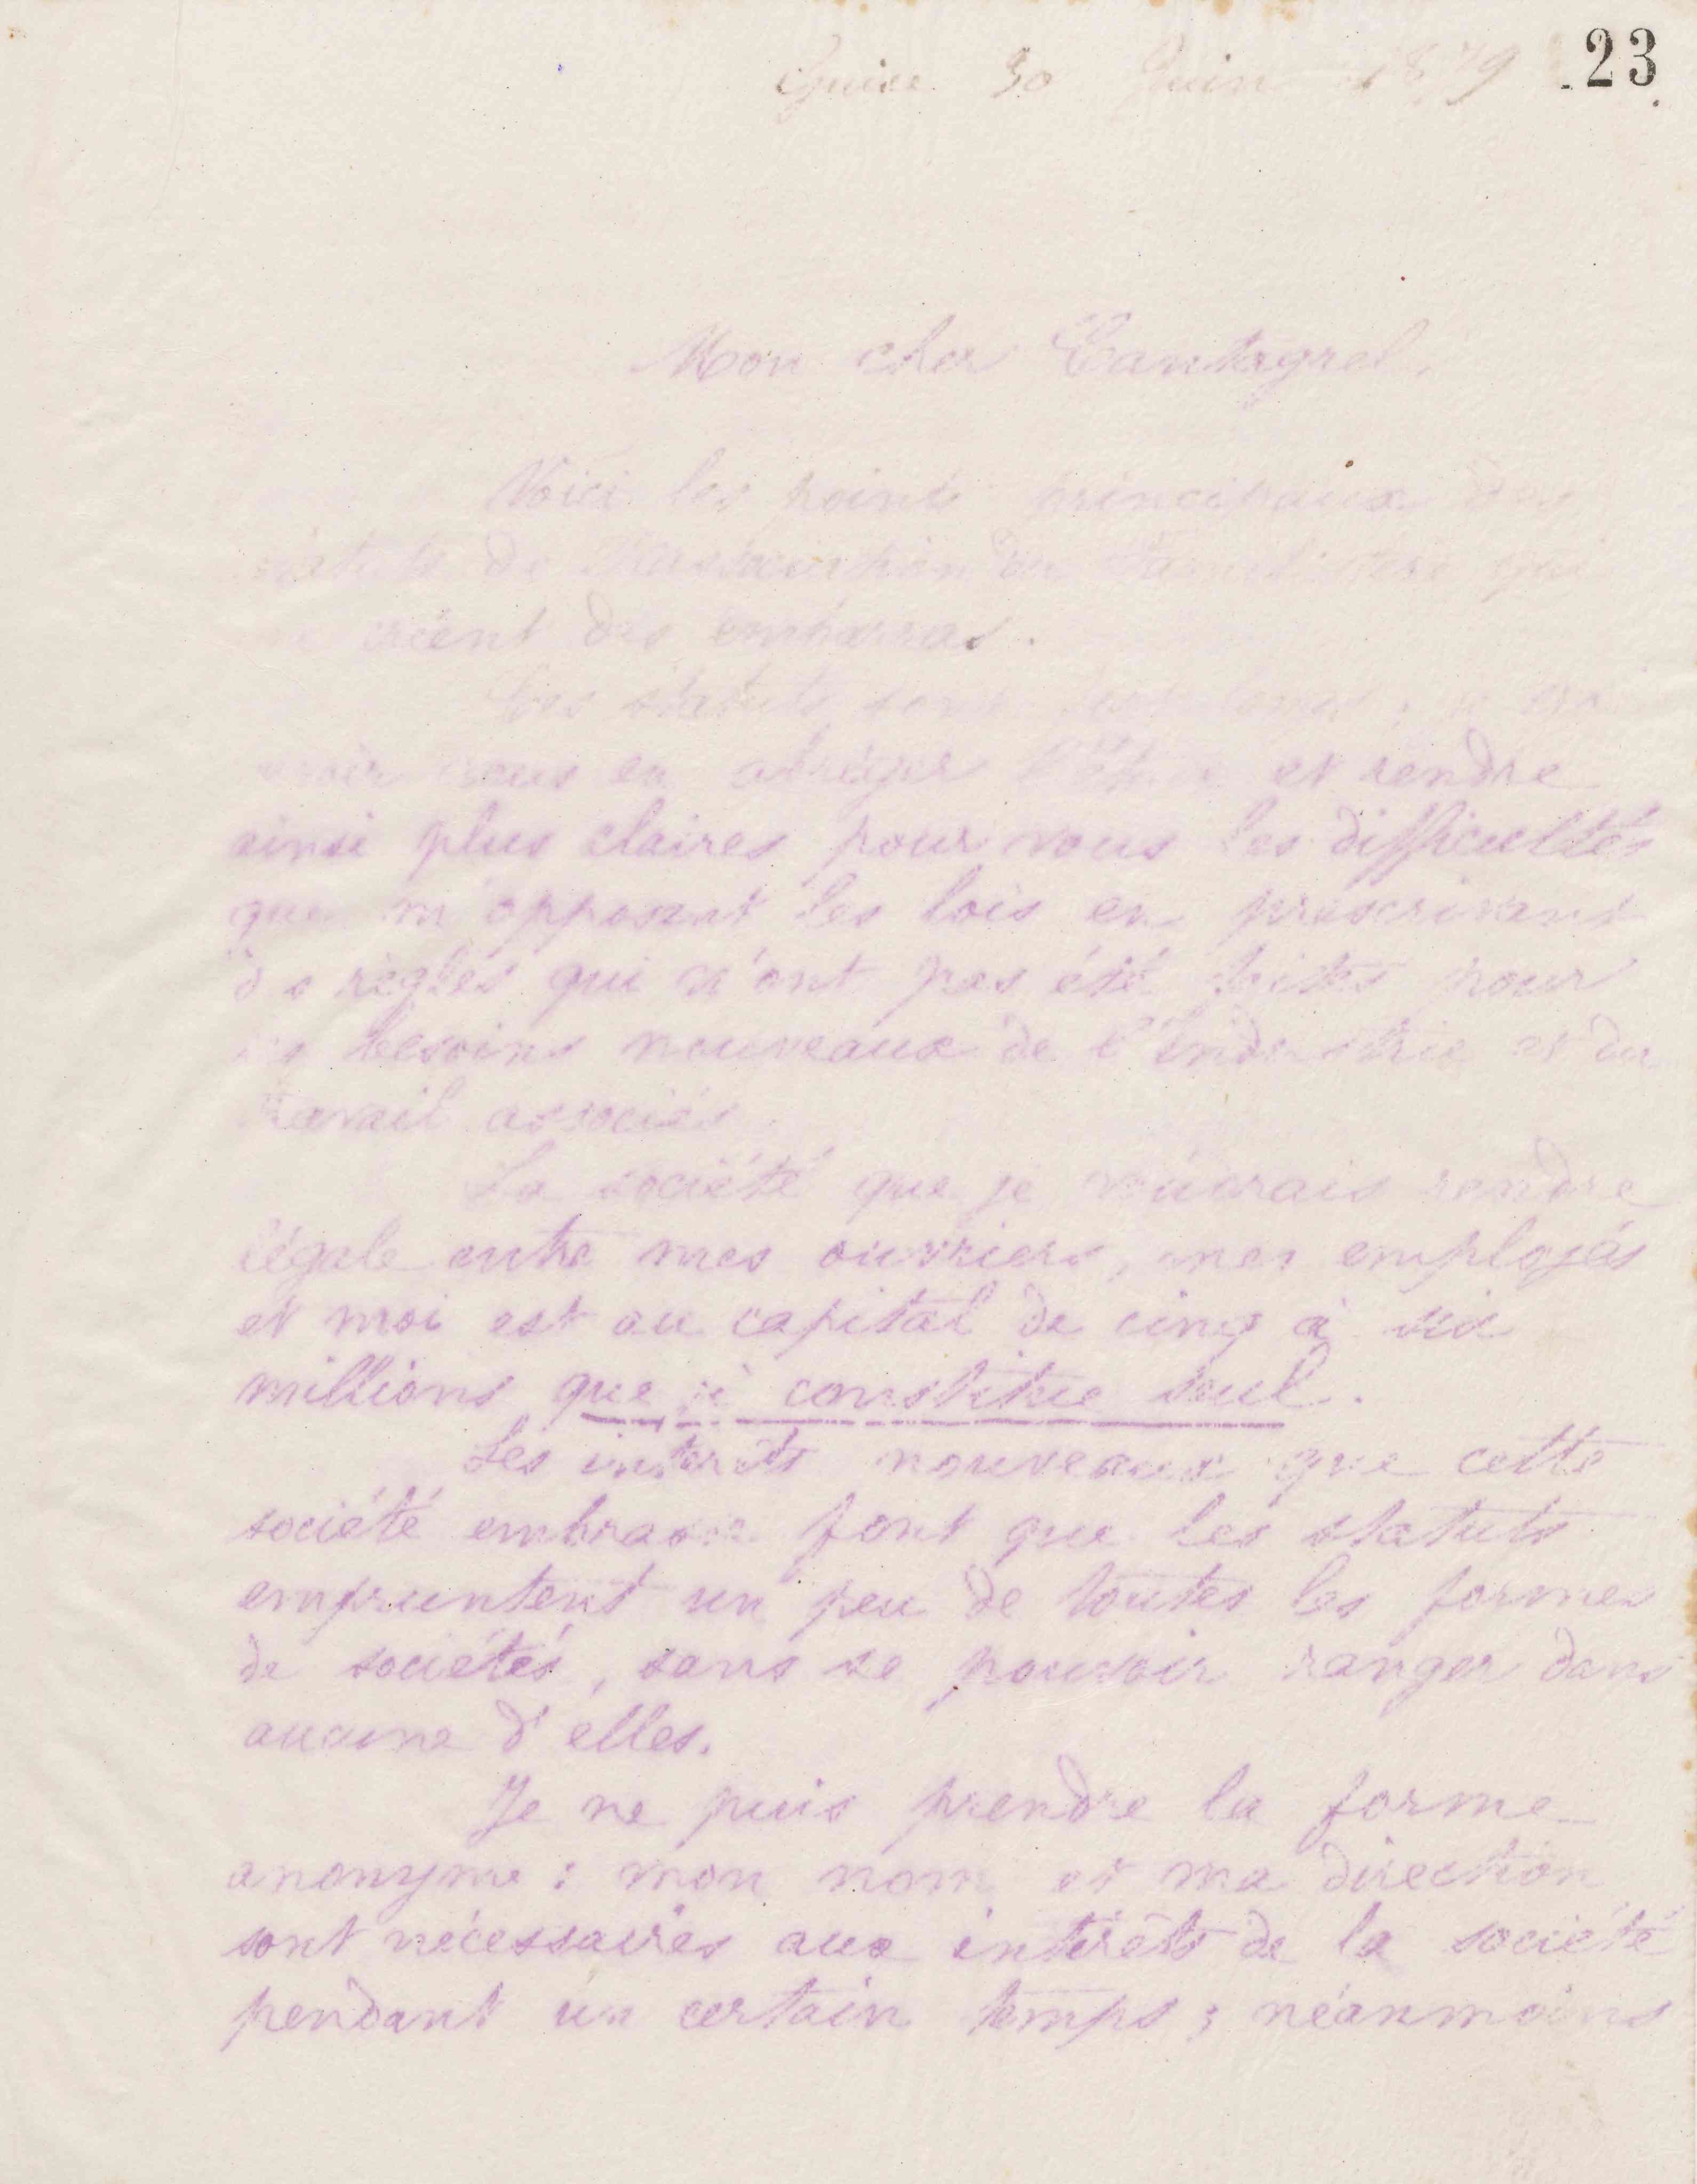 23
Guise 30 Juin 1879
Mon cher Cantagrel,
Voici les points principaux des
statuts de l'association du Familistère qui
créent des embarras.
Ces statuts sont
vous en abréger et rendre
ainsi plus claires pour vous les difficultés
que m'opposent les lois en prescrivant
des règles qui n'ont pas été faites pour
les besoins nouveaux de l'industrie et du
travail associés.
La société que je voudrais rendre
légale entre mes ouvriers, mes employés
et moi est au capital de cinq à six
millions que je constitue seul.
Les intérêts nouveaux que cette
société embrasse font que les statuts
empruntent un peu de toutes les formes
de sociétés, sans se pouvoir ranger dans
aucune d'elles.
Je ne puis prendre la forme
anonyme : mon nom et ma direction
sont nécessaires aux intérêts de la société
pendant un certain temps ; néanmoins